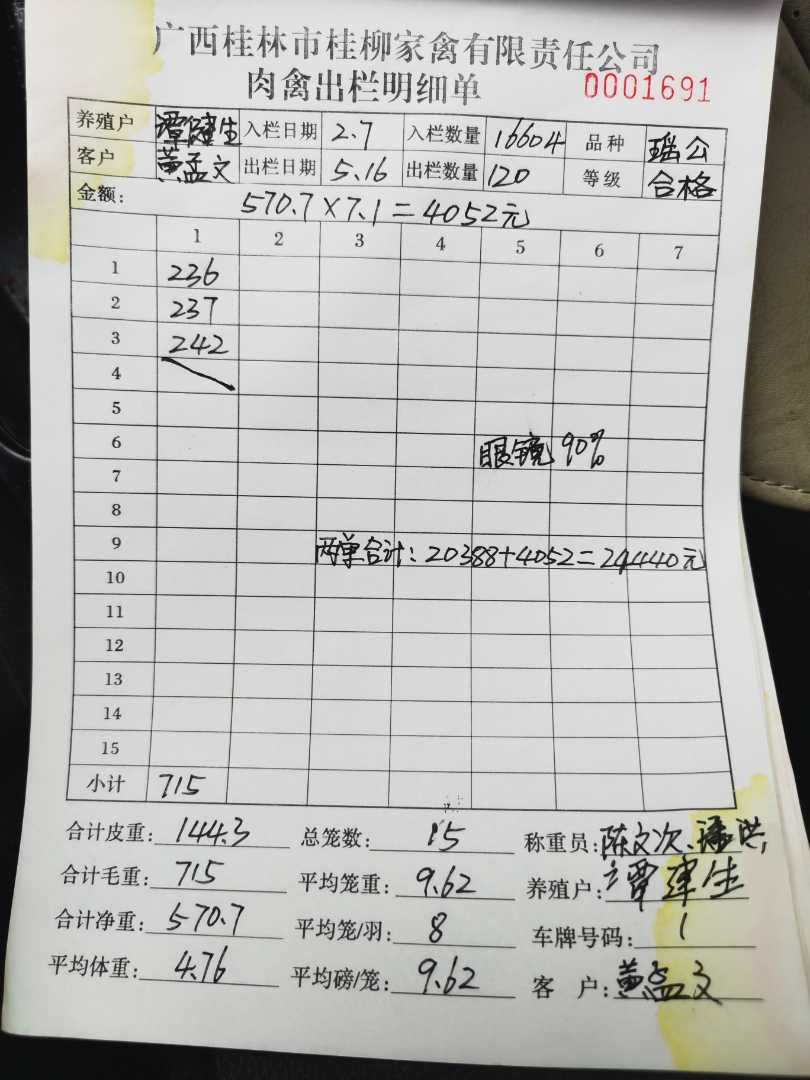 广西桂林市桂柳家禽有限责任公司
肉禽出栏明细单 0001691
养殖户 谭建生 入栏日期 2.7 入栏数量 16604 品种 瑶公
客户 黄孟文 出栏日期 5.16 出栏数量 120 等级 合格
金额: 570.7×7.1=4052元
1 2 3 4 5 6 7
1 236
2 237
3 242
4
5
6 眼镜 90%
7
8
9 两单合计:20388+4052=24440元
10
11
12
13
14
15
小计 715
合计皮重: 144.3 总笼数: 15 称重员: 陈文次、潘洪
合计毛重: 715 平均笼重: 9.62 养殖户: 谭建生
合计净重: 570.7 平均笼/羽: 8 车牌号码: 1
平均体重: 4.76 平均磅/笼: 9.62 客 户: 黄孟文